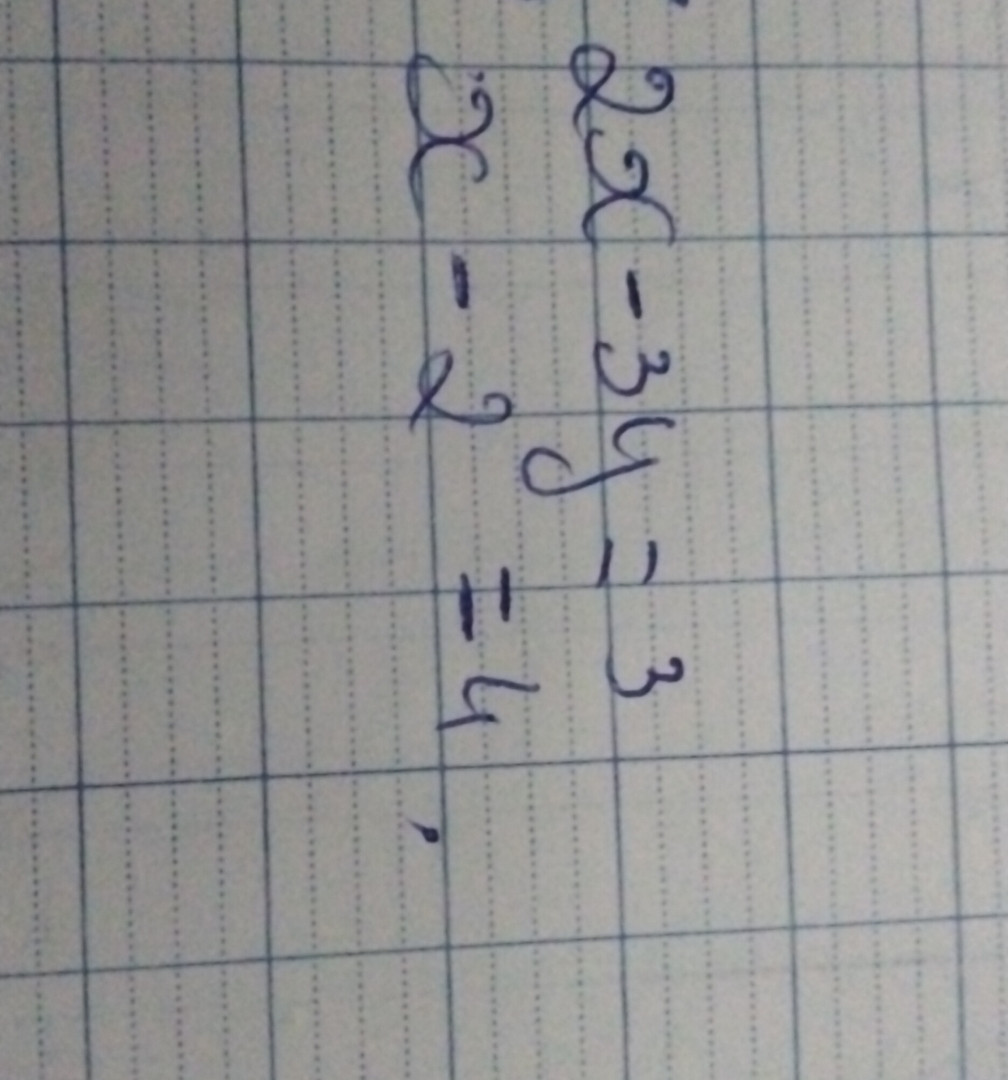 2x - 3y = 3
x - 2 = 4